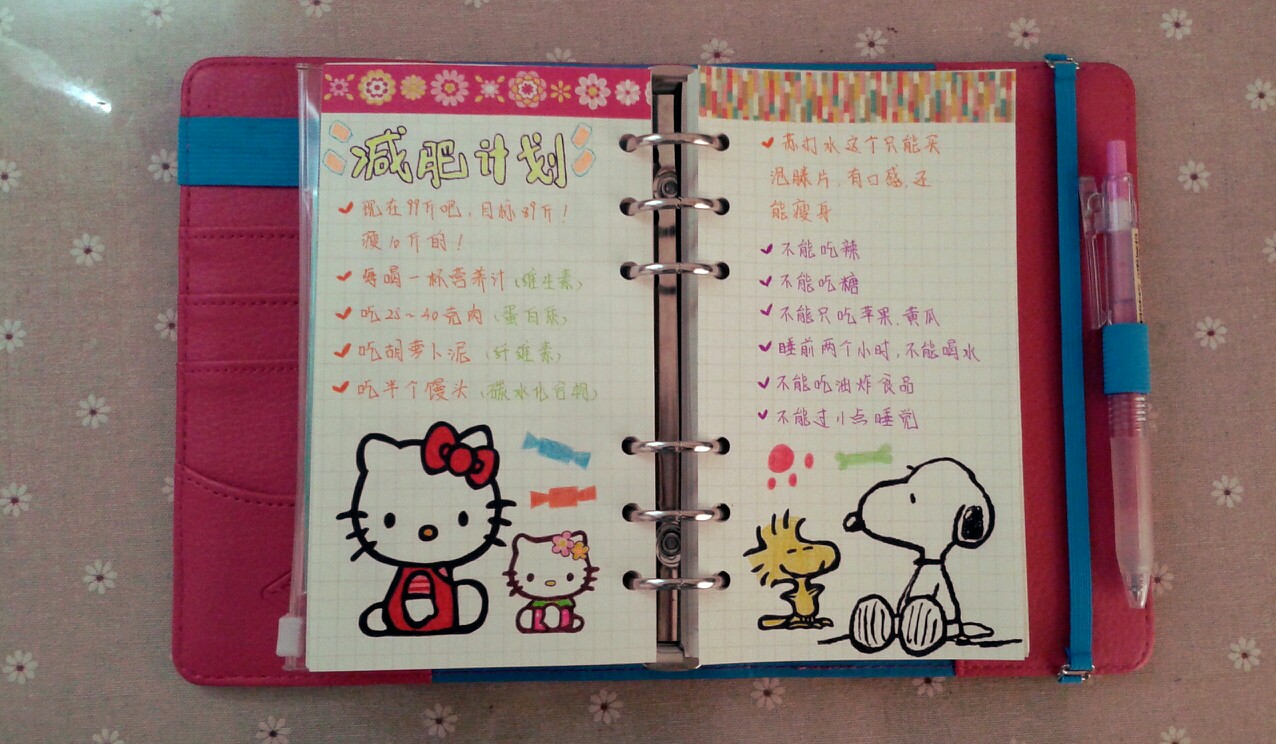 减肥计划
现在99斤吧，目标89斤！
瘦10斤的！
每喝一杯营养汁（维生素）
吃28～40克肉（蛋白质）
吃胡萝卜泥（纤维素）
吃半个馒头（碳水化合物）
苏打水这个只能买
泡腾片，有口感，还
能瘦身
不能吃辣
不能吃糖
不能只吃苹果、黄瓜
睡前两个小时，不能喝水
不能吃油炸食品
不能过11点睡觉